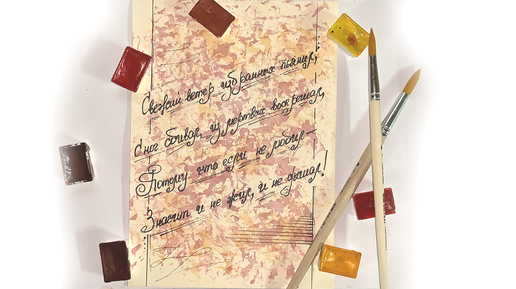 Свежий ветер избранных пьянил,
С ног сбивал, из мертвых воскрешал,
Потому что если не любил —
Значит и не жил, и не дышал!